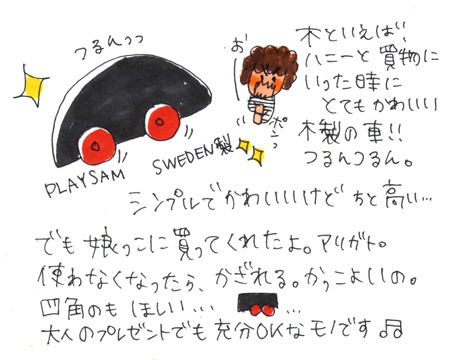 つるんっっ
お
ポンっ
PLAYSAM
SWEDEN製
木といえば!
ハニーと買物に
いった時に
とてもかわいい
木製の車!!
つるんつるん。
シンプルでかわいいけど ちと高い…
でも娘っこに買ってくれたよ。アリガト。
使わなくなったら、かざれる。かっこよいの。
四角のもほしい… …
大人のプレゼントでも充分OKなモノです♫